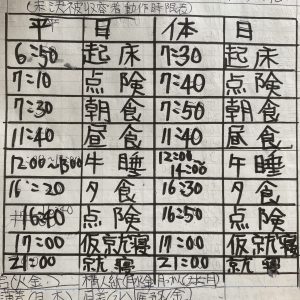 (未決被収容者動作時限表)
平日 休日
6:50 起床 7:30 起床
7:10 点険 7:40 点険
7:30 朝食 7:50 朝食
11:40 昼食 11:40 昼食
12:00~13:00 午睡 12:00~14:00 午睡
16:20 夕食 16:30 夕食
16:40 点険 16:50 点険
17:00 仮就寝 17:00 仮就寝
21:00 就寝 21:00 就寝